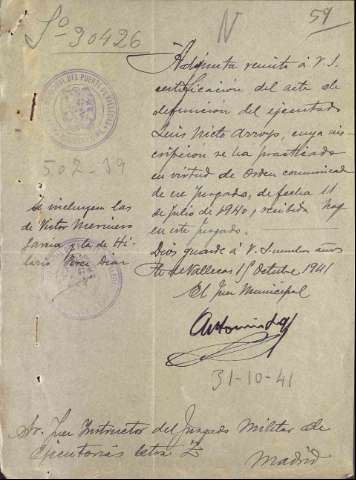 Sº 30426
N
59
Adjunta remito á V. S.
certificación del acta de
defunción del ejecutado
Luis Nieto Arroyo, cuya ins
cripción se ha practicado
en virtud de Orden comunicada
de ese Juzgado, de fecha 11
de Julio de 1940, recibida hoy
en este Juzgado.
Dios guarde á V. S. muchos años
de Vallecas 15 Octubre 1941
El Juez Municipal
31-10-41
502-39
Se incluyen las
de Victor
Garcia y la de Hi
lario Diaz
Sr. Juez Instructor del Juzgado Militar de
Ejecutorias letra
Madrid